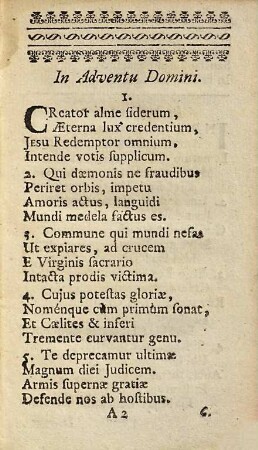 In Adventu Domini.
1.
CReator alme siderum,
Æterna lux credentium,
Jesu Redemptor omnium,
Intende votis supplicum.
2. Qui dæmonis ne fraudibus
Periret orbis, impetu
Amoris actus, languidi
Mundi medela factus es.
3. Commune qui mundi nefas
Ut expiares, ad crucem
E Virginis sacrario
Intacta prodis victima.
4. Cujus potestas gloriæ,
Noménque cùm primùm sonat,
Et Cælites & inferi
Tremente curvantur genu.
5. Te deprecamur ultimæ
Magnum diei Judicem.
Armis supernæ gratiæ
Defende nos ab hostibus.
A2 6.